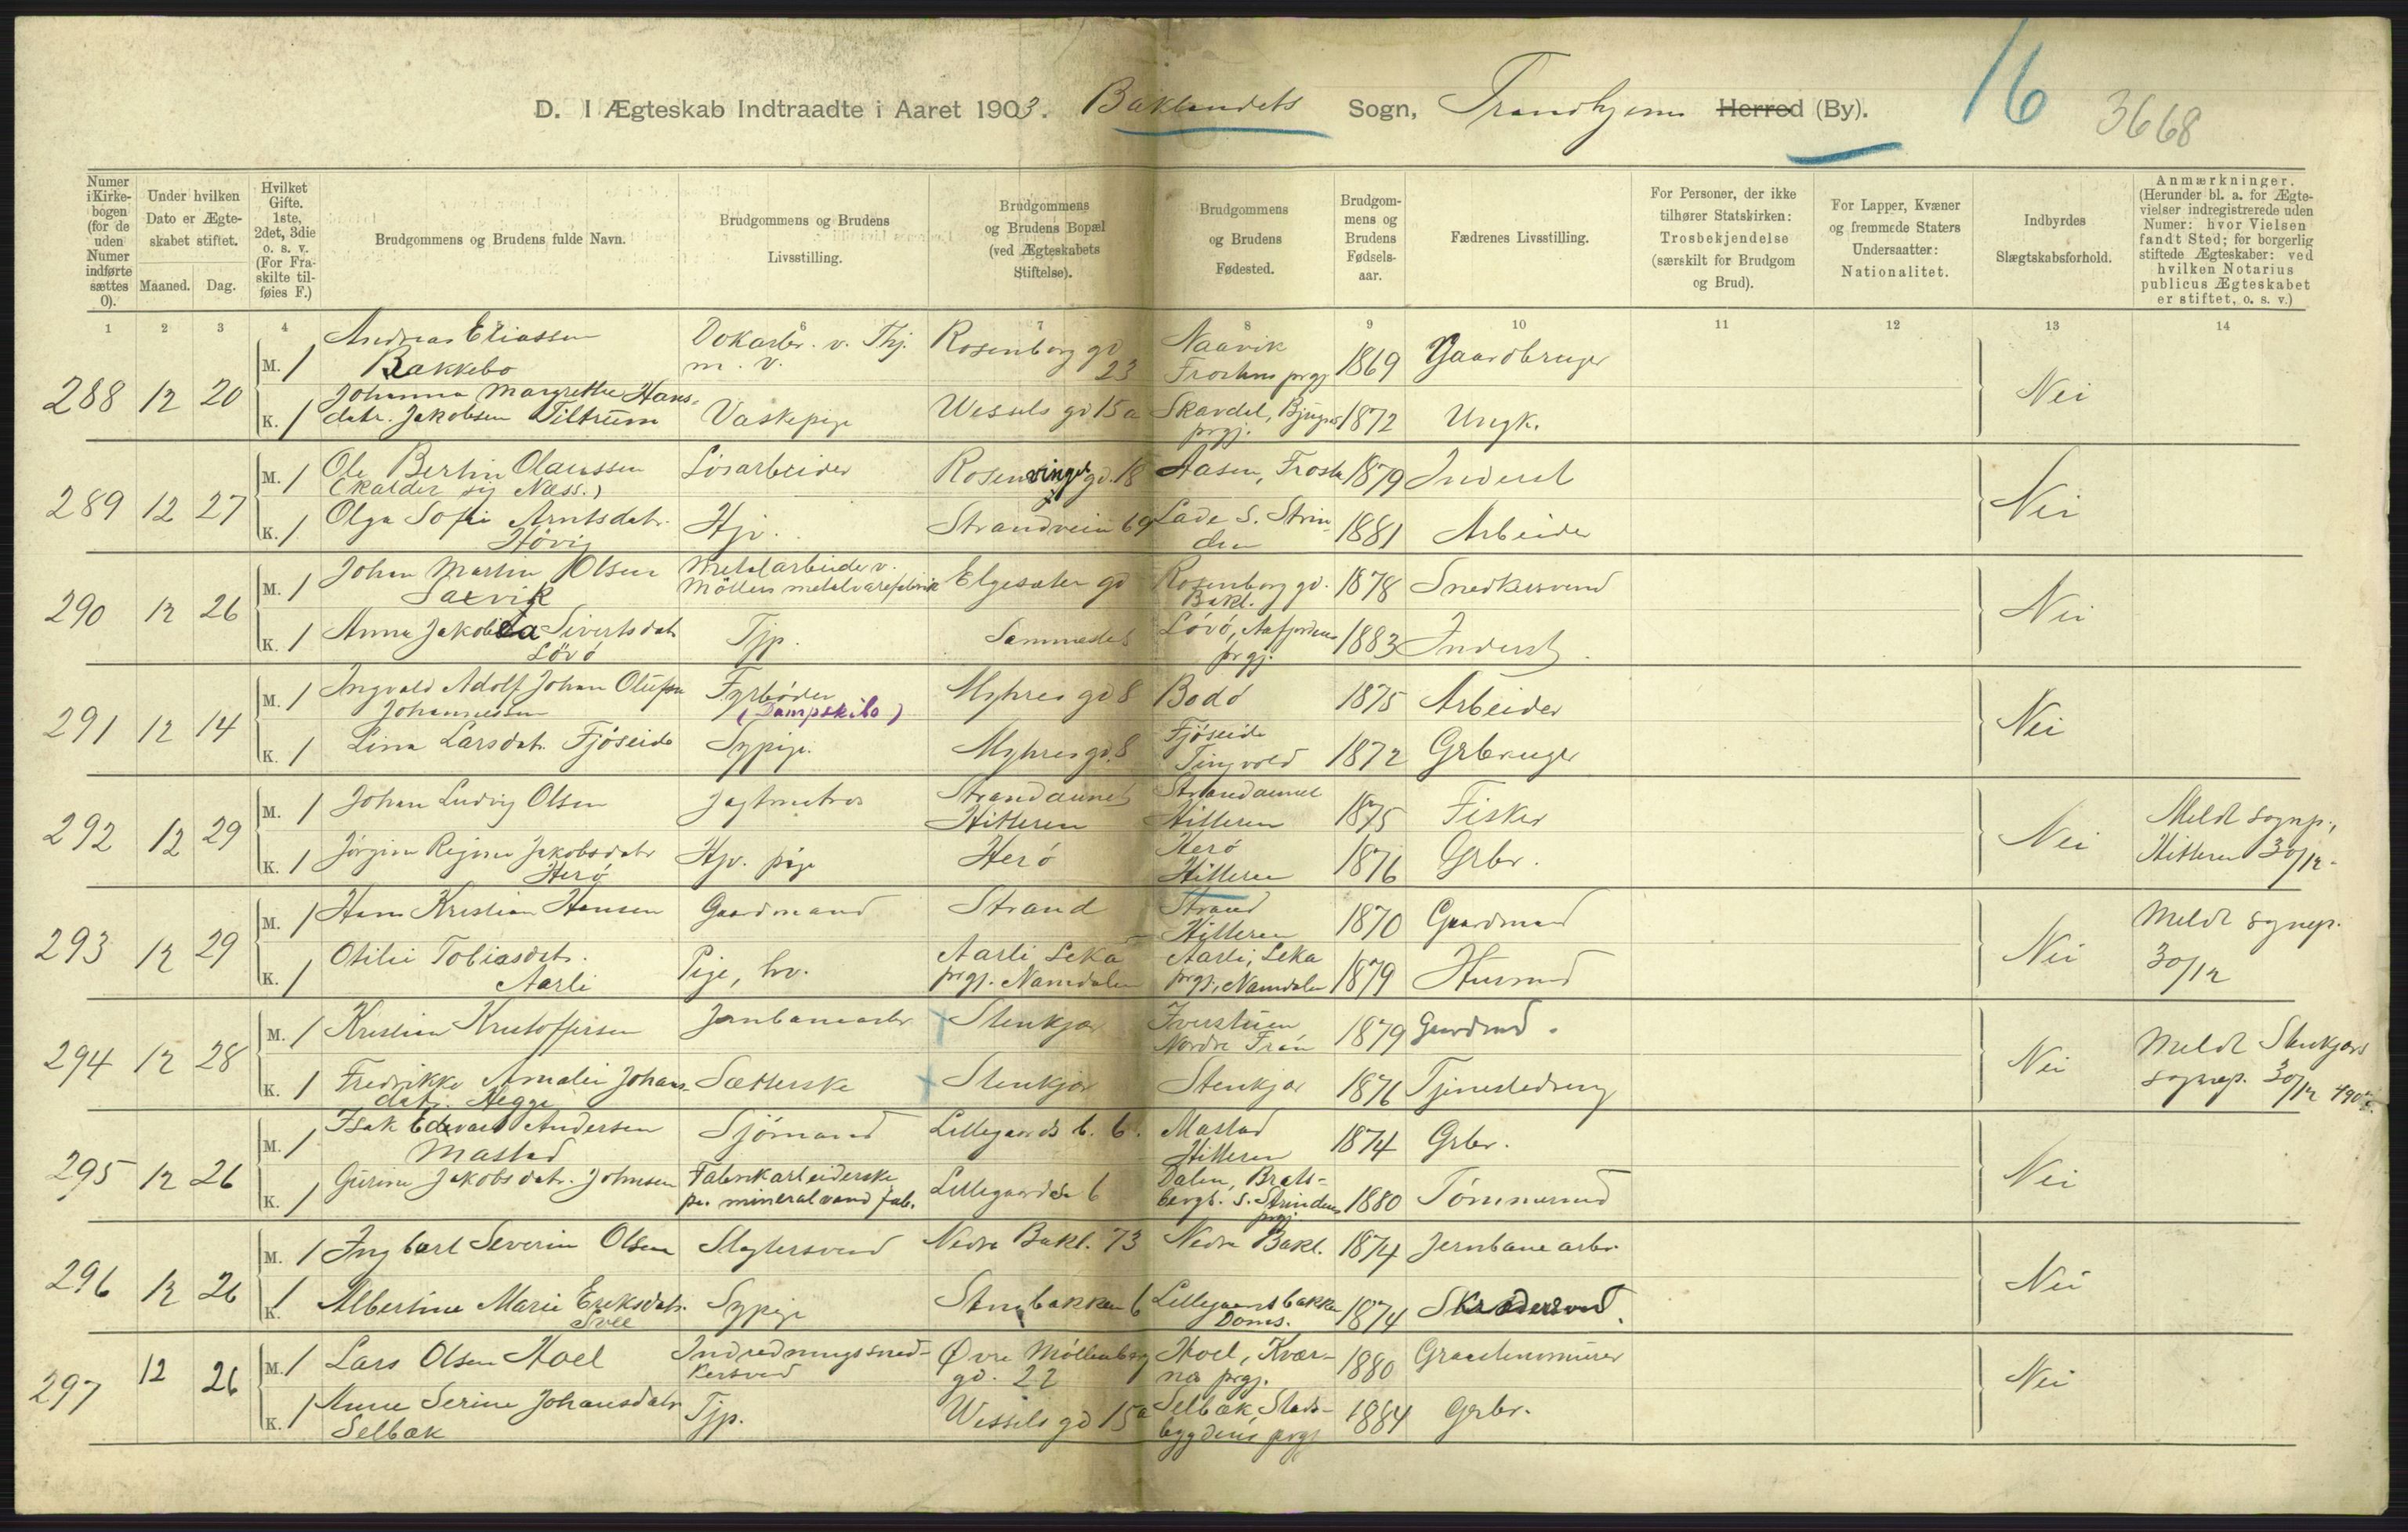 D. I Ægteskab Indtraadte i Aaret 1903. Baklandets Sogn, Trondhjems Herred (By). 16 3668
Numer i Kirkebogen (for de uden Numer indførte sættes 0).
Under hvilken Dato er Ægteskabet stiftet.
Maaned. Dag.
Hvilket Gifte. 1ste, 2det, 3die o. s. v. (For Fraskilte tilføies F.)
Brudgommens og Brudens fulde Navn.
Brudgommens og Brudens Livsstilling.
Brudgommens og Brudens Bopæl (ved Ægteskabets Stiftelse).
Brudgommens og Brudens Fødested.
Brudgommens og Brudens Fødselsaar.
Fædrenes Livsstilling.
For Personer, der ikke tilhører Statskirken: Trosbekjendelse (særskilt for Brudgom og Brud).
For Lapper, Kvæner og fremmede Staters Undersaatter: Nationalitet.
Indbyrdes Slægtskabsforhold.
Anmærkninger. (Herunder bl. a. for Ægtevielser indregistrerede uden Numer: hvor Vielsen fandt Sted; for borgerlig stiftede Ægteskaber: ved hvilken Notarius publicus Ægteskabet er stiftet, o. s. v.)
1 2 3 4 6 7 8 9 10 11 12 13 14
288 12 20 M. 1 Andreas Eliassen Bakkebo Dokarbr. v. Thj. m. v. Rosenborg gd 23 Naavik Frostens prgj 1869 Gaardbruger Nei
K. 1 Johanna Margrethe Hansdatr. Jakobsen Tiltrum Vaskepige Wessels gd 15a Skavdal, Bjugns prgj. 1872 Ungk.
289 12 27 M. 1 Ole Bertin Olaussen (kalder sig Næss.) Løsarbeider Rosenvinges gd. 18 Aasen, Frosta 1879 Inderst Nei
K. 1 Olga Sofie Arntsdatr. Høvig Hjv. Strandveien 69 Lade S. Strinden 1881 Arbeider
290 12 26 M. 1 Johan Martin Olsen Saxvik Metalarbeider v. Møllers metalvarefabrik Elgesæter gd Rosenborg gd. Bakl. 1878 Snedkersvend Nei
K. 1 Anna Jakobea Sivertsdatr Løvø Tjp. Sammesteds Løvø, Aafjordens prgj. 1883 Inderst.
291 12 14 M. 1 Ingvald Adolf Johan Olufsen Johannessen Fyrbøder (Dampskibs) Myhres gd 8 Bodø 1875 Arbeider Nei
K. 1 Lina Larsdatr. Fjøseide Sypige. Myhres gd. 8 Fjøseide Tingvold 1872 Grbruger
292 12 29 M. 1 Johan Ludvig Olsen Jagtmatros Strandaunet Hitteren Strandaunet Hitteren 1875 Fisker Nei Meldt sognep., Hitteren 30/12.
K. 1 Jørgine Regine Jakobsdatr Herø Hjv. pige Herø Herø Hitteren 1876 Grbr.
293 12 29 M. 1 Hans Kristian Hansen Gaardmand Strand Strand Hitteren 1870 Gaardmand Nei Meldt sognep. 30/12
K. 1 Otilie Tobiasdatr. Aarli Pige, hv. Aarli, Leka prgj. Namdalen Aarli, Leka prgj., Namdalen 1879 Husmd
294 12 28 M. 1 Kristian Kristoffersen Jernbanearbr Stenkjær Iverstuen Nordre Fron 1879 Gaardmd. Nei Meldt Stenkjærs sognep. 30/12 190
K. 1 Fredrikke Amalie Johansdatr. Hegge Sætterske Stenkjær Stenkjær 1876 Tjenestedreng
295 12 26 M. 1 Isak Edvard Andersen Mastad Sjømand Lillegaards b. 6. Mastad Hitteren 1874 Grbr. Nei
K. 1 Gurine Jakobsdatr. Johnsen Fabrikarbeiderske pa. mineralvand fab. Lillegaardsb 6 Dalen, Bratsbergb. S. Strindens prgj 1880 Tømmermd
296 12 26 M. 1 Ingbart Severin Olsen Slagtersvend Nedre Bakl. 73 Nedre Bakl. 1874 Jernbanearbr. Nei
K. 1 Albertine Marie Eriksdatr. Svee Sypige Stenbakken 6 Lillegaardsbakken Doms. 1874 Skrædersvend.
297 12 26 M. 1 Lars Olsen Hoel Indredningssnedkersvend Øvre Møllenberg gd. 22 Hoel, Kværnæs prgj. 1880 Graastensmurer Nei
K. 1 Anne Serine Johansdatr Selbæk Tjp. Wessels gd 15a Selbæk, Stadsbygdens prgj 1884 Grbr.